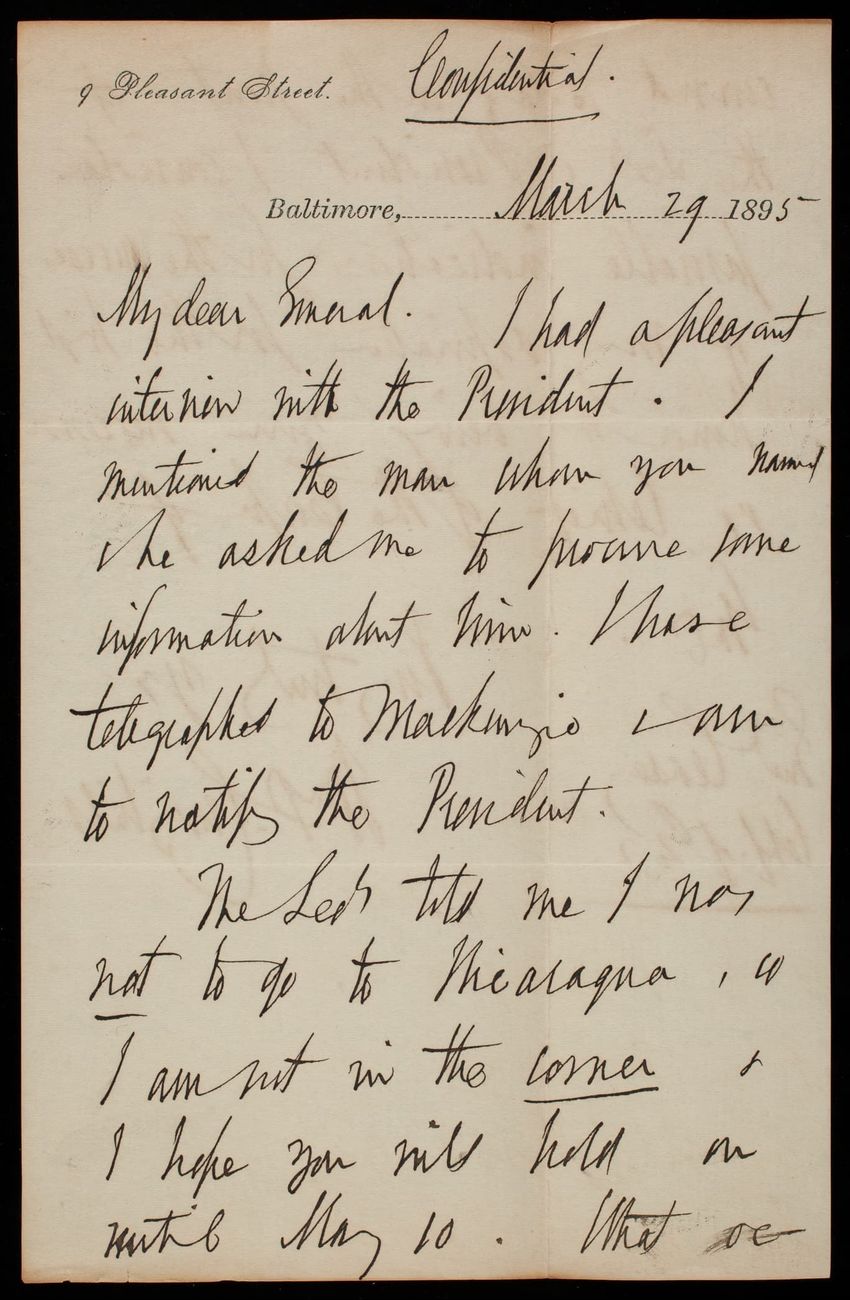 9 Pleasant Street.
Confidential.
Baltimore, March 29 1895
My dear General. I had a pleasant
interview with the President. I
mentioned the man whom you named
& he asked me to procure some
information about him. I have
telegraphed to Mackenzie & am
to notify the President.
The Secy told me I was
not to go to Nicaragua, so
I am not in the corner &
I hope you will hold on
until May 10. What oc